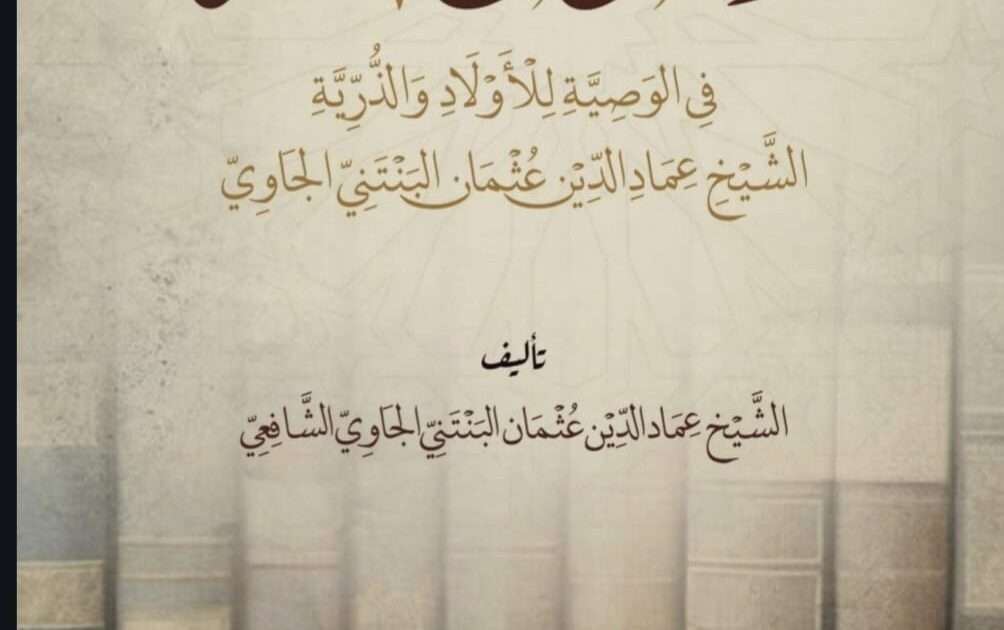 فِي الوَصِيَّةِ لِلْأَوْلَادِ وَالذُّرِّيَّةِ
الشَّيْخِ عِمَادِ الدِّيْنِ عُثْمَان البَنْتَنِيّ الجَاوِيّ
تأليف
الشَّيْخ عِمَاد الدِّيْن عُثْمَان البَنْتَنِيّ الجَاوِيّ الشَّافِعِيّ